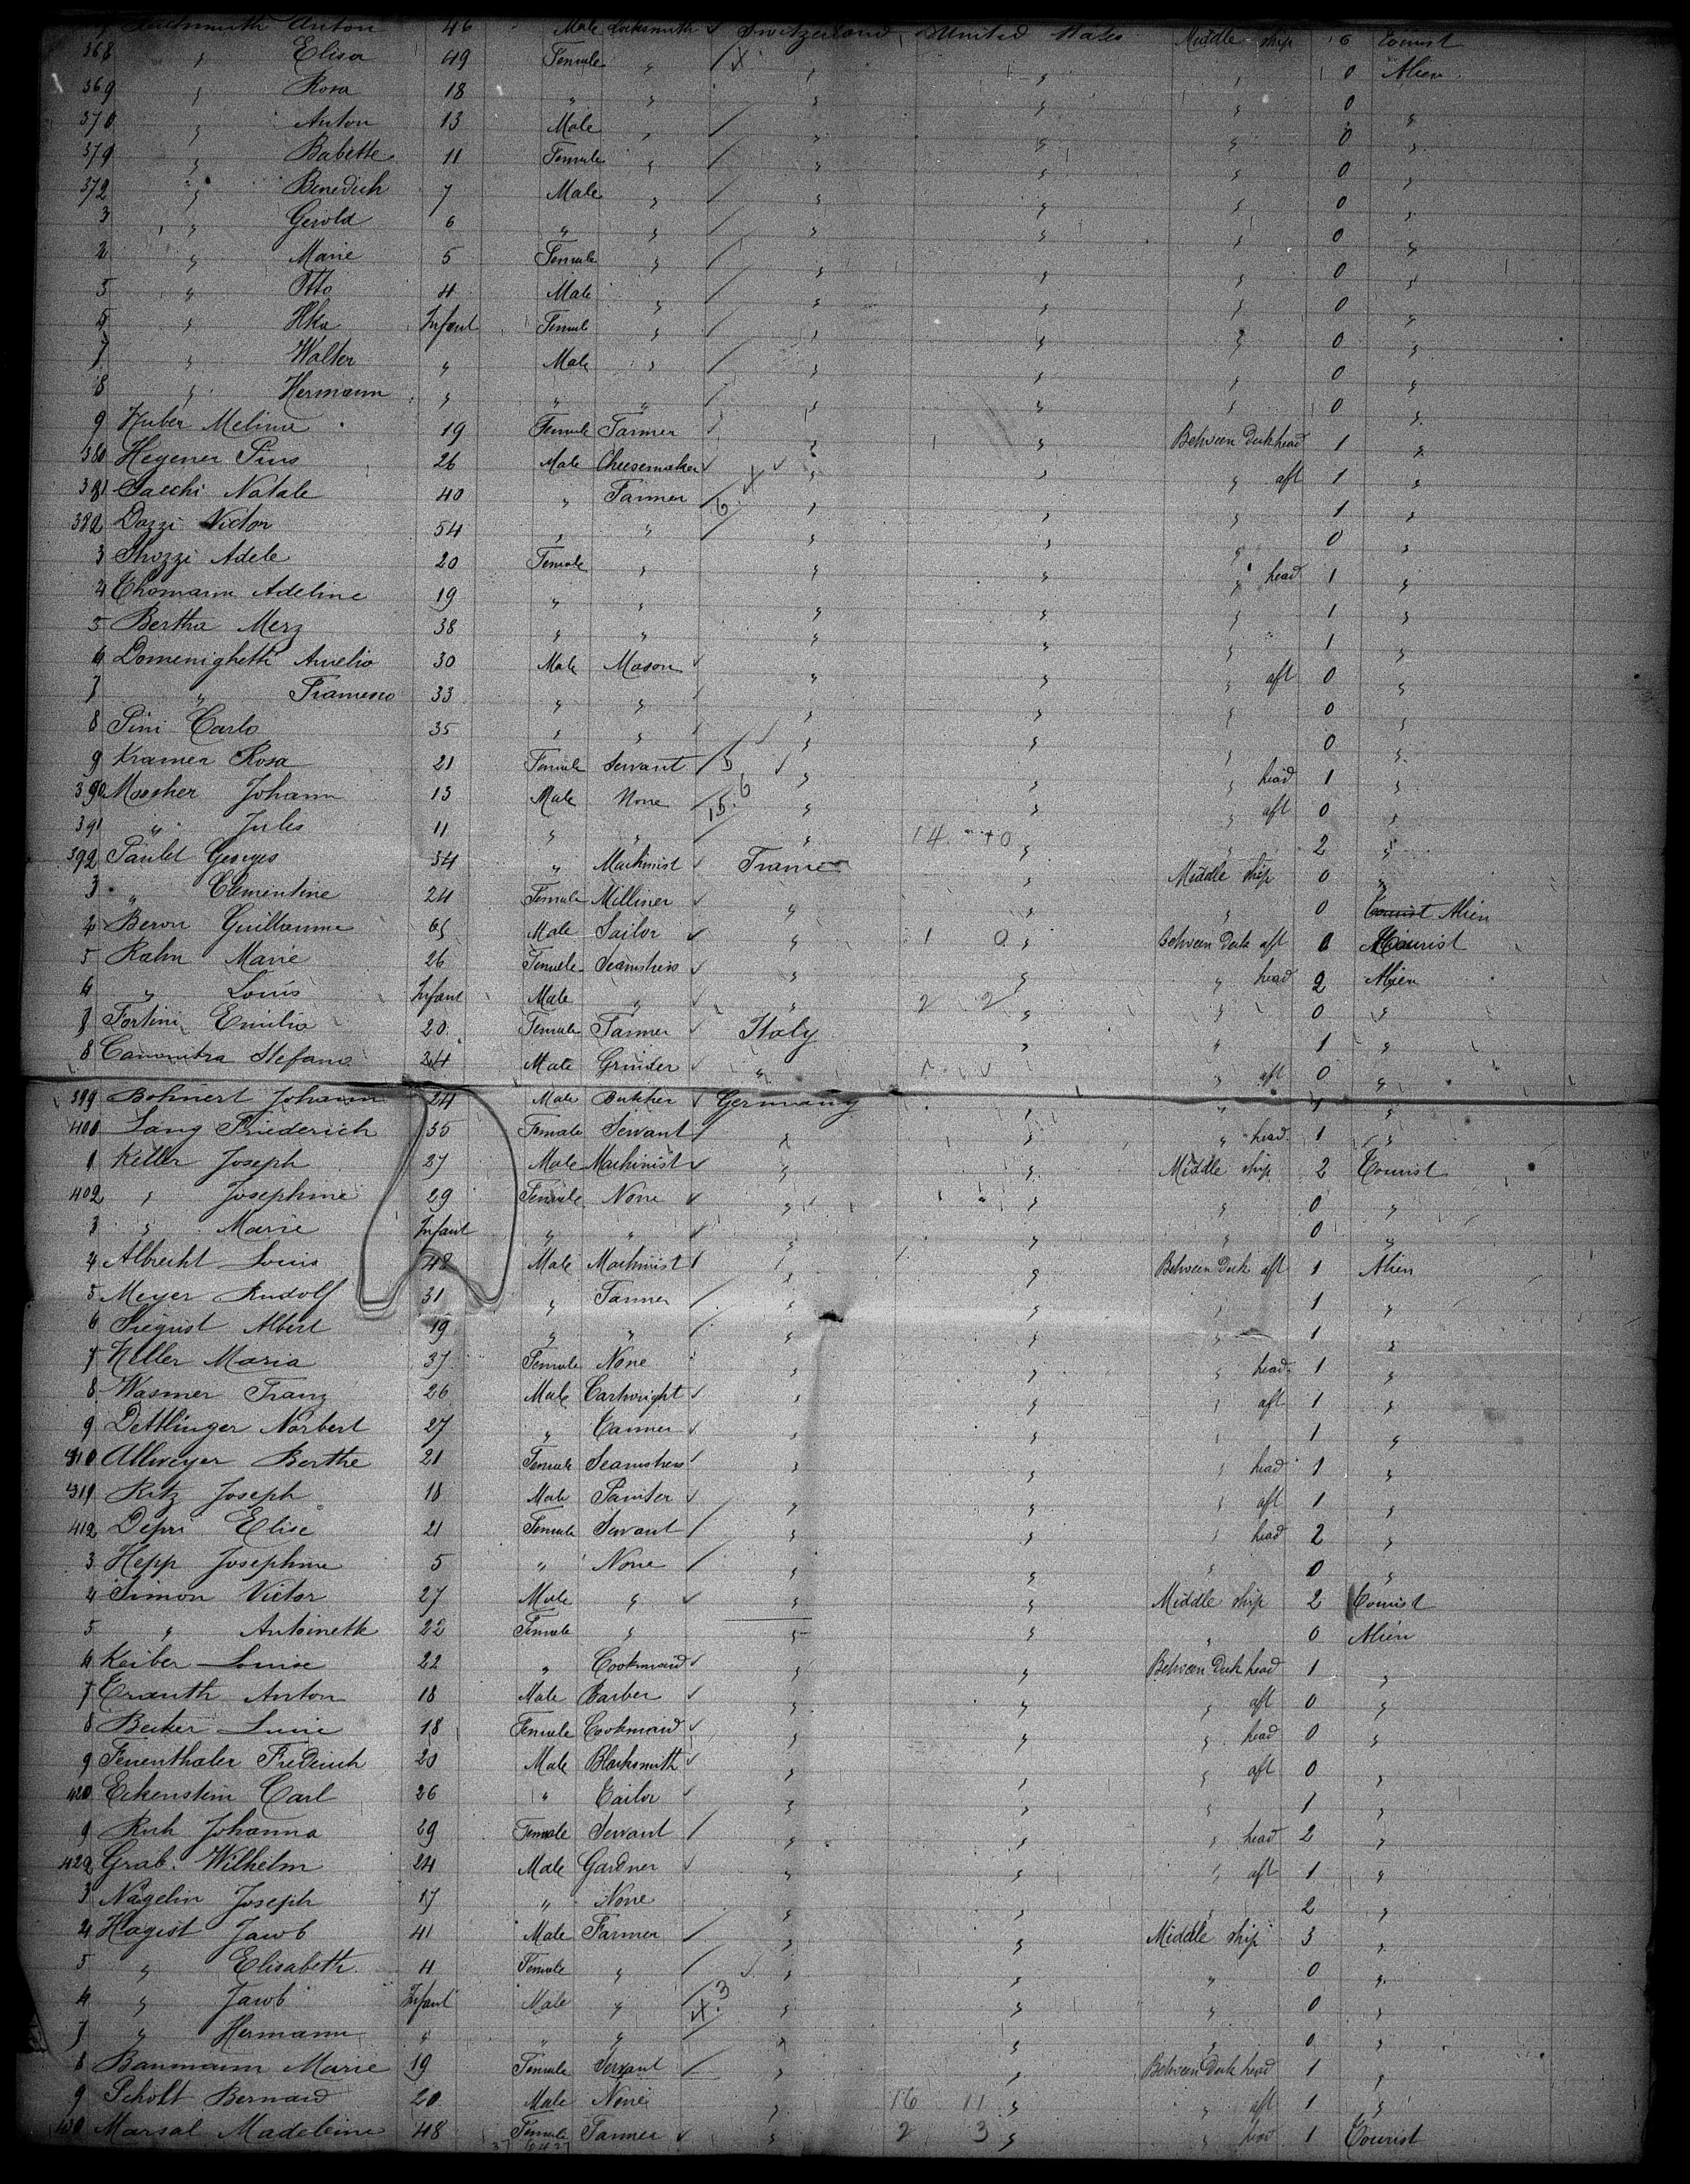 Anton 46 Male Locksmith Switzerland United States Middle ship 6 Tourist
368 " Elisa 49 Female " " " " 0 Alien
369 " Rosa 18 " " " " " 0 "
370 " Anton 13 Male " " " " 0 "
379 " Babette 11 Female " " " " 0 "
372 " Benedich 7 Male " " " " 0 "
3 " Gerold 6 " " " " " 0 "
4 " Marie 5 Female " " " " 0 "
5 " Otto 4 Male " " " " 0 "
6 " Ilka Infant Female " " " " 0 "
7 " Walter " Male " " " " 0 "
8 " Hermann " " " " " " 0 "
9 Huber Melina 19 Female Farmer " " Between Deck head 1 "
380 Hegener Pius 26 Male Cheesemaker " " " aft 1 "
381 Sacchi Natale 40 " Farmer " " " 1 "
382 Dozzi Victor 54 " " " " " 0 "
3 Adele 20 Female " " " " head 1 "
4 Thomann Adeline 19 " " " " " 1 "
5 Bertha Merz 38 " " " " " 1 "
6 Domenighetti Amelio 30 Male Mason " " " aft 0 "
7 " Francesco 33 " " " " " 0 "
8 Pini Carlo 35 " " " " " 0 "
9 Kramer Rosa 21 Female Servant " " " head 1 "
390 Johann 13 Male None " " " aft 0 "
391 " Jules 11 " " " 14 + 0 " " 2 "
392 Paulet Georges 34 " Machinist France " Middle ship 0 "
3 " Clementine 24 Female Milliner " " " 0 Tourist Alien
4 Beron Guillaume 65 Male Sailor " 1 0 " Between Deck aft Tourist
5 Kahn Marie 26 Female Seamstress " " " head 2 Alien
6 " Louis Infant Male " " 2 2 " " 0 "
7 Fortini Emilia 20 Female Farmer Italy " " 1 "
8 Stefano 24 Male Grinder " " aft 0 "
399 Bohnert Johann 24 Male Butcher Germany " " 1 "
400 Lang Friederich 35 Female Servant " " " head 1 "
1 Keller Joseph 27 Male Machinist " " Middle ship 2 Tourist
402 " Josephine 29 Female None " " " 0 "
3 " Marie Infant " " " " " 0 "
4 Albrecht Louis 48 Male Machinist " " Between Deck aft 1 Alien
5 Meyer Rudolf 31 " Farmer " " " 1 "
6 Siegrist Albert 19 " " " " " 1 "
7 Maria 37 Female None " " " head 1 "
8 Wasmer Franz 26 Male Cartwright " " " aft 1 "
9 Dettlinger Norbert 27 " Tanner " " " 1 "
410 Allweyer Berthe 21 Female Seamstress " " " head 1 "
411 Ritz Joseph 18 Male Painter " " " aft 1 "
412 Elise 21 Female Servant " " " head 2 "
3 Hepp Josephine 5 " None " " " 0 "
4 Simon Victor 27 Male " " " Middle ship 2 Tourist
5 " Antoinette 22 Female " " " " 0 Alien
6 Keiber Louise 22 " Cookmaid " " Between Deck head 1 "
7 Erauth Anton 18 Male Barber " " " aft 0 "
8 Becker Luise 18 Female Cookmaid " " " head 0 "
9 Feuenthaler Frederich 20 Male Blacksmith " " " aft 0 "
420 Eckenstein Carl 26 " Tailor " " " 1 "
9 Ruh Johanna 29 Female Servant " " " head 2 "
422 Grab Wilhelm 24 Male Gardner " " " aft 1 "
3 Nägelin Joseph 17 " None " " " 2 "
4 Hagist Jacob 41 Male Farmer " " Middle ship 3 "
5 " Elisabeth 11 Female " " " " 0 "
6 " Jacob Infant Male " " " " 0 "
7 " Hermann " " " " " " 0 "
8 Baumann Marie 19 Female Servant " " Between Deck head 1 "
9 Schott Bernard 20 Male None " 16 11 " " aft 1 "
430 Marsal Madeleine 48 Female Farmer " 2 3 " " head 1 Tourist